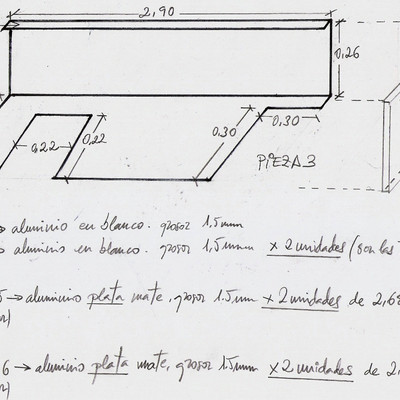 2,90
0,26
0,30
0,30
0,22
0,22
PIEZA 3
→ aluminio en blanco. grosor 1,5mm
aluminio en blanco. grosor 1,5mm x 2 unidades (son las
5 → aluminio plata mate, grosor 1.5mm x 2 unidades de 2,6
6 → aluminio plata mate, grosor 1.5mm x 2 unidades de 2,